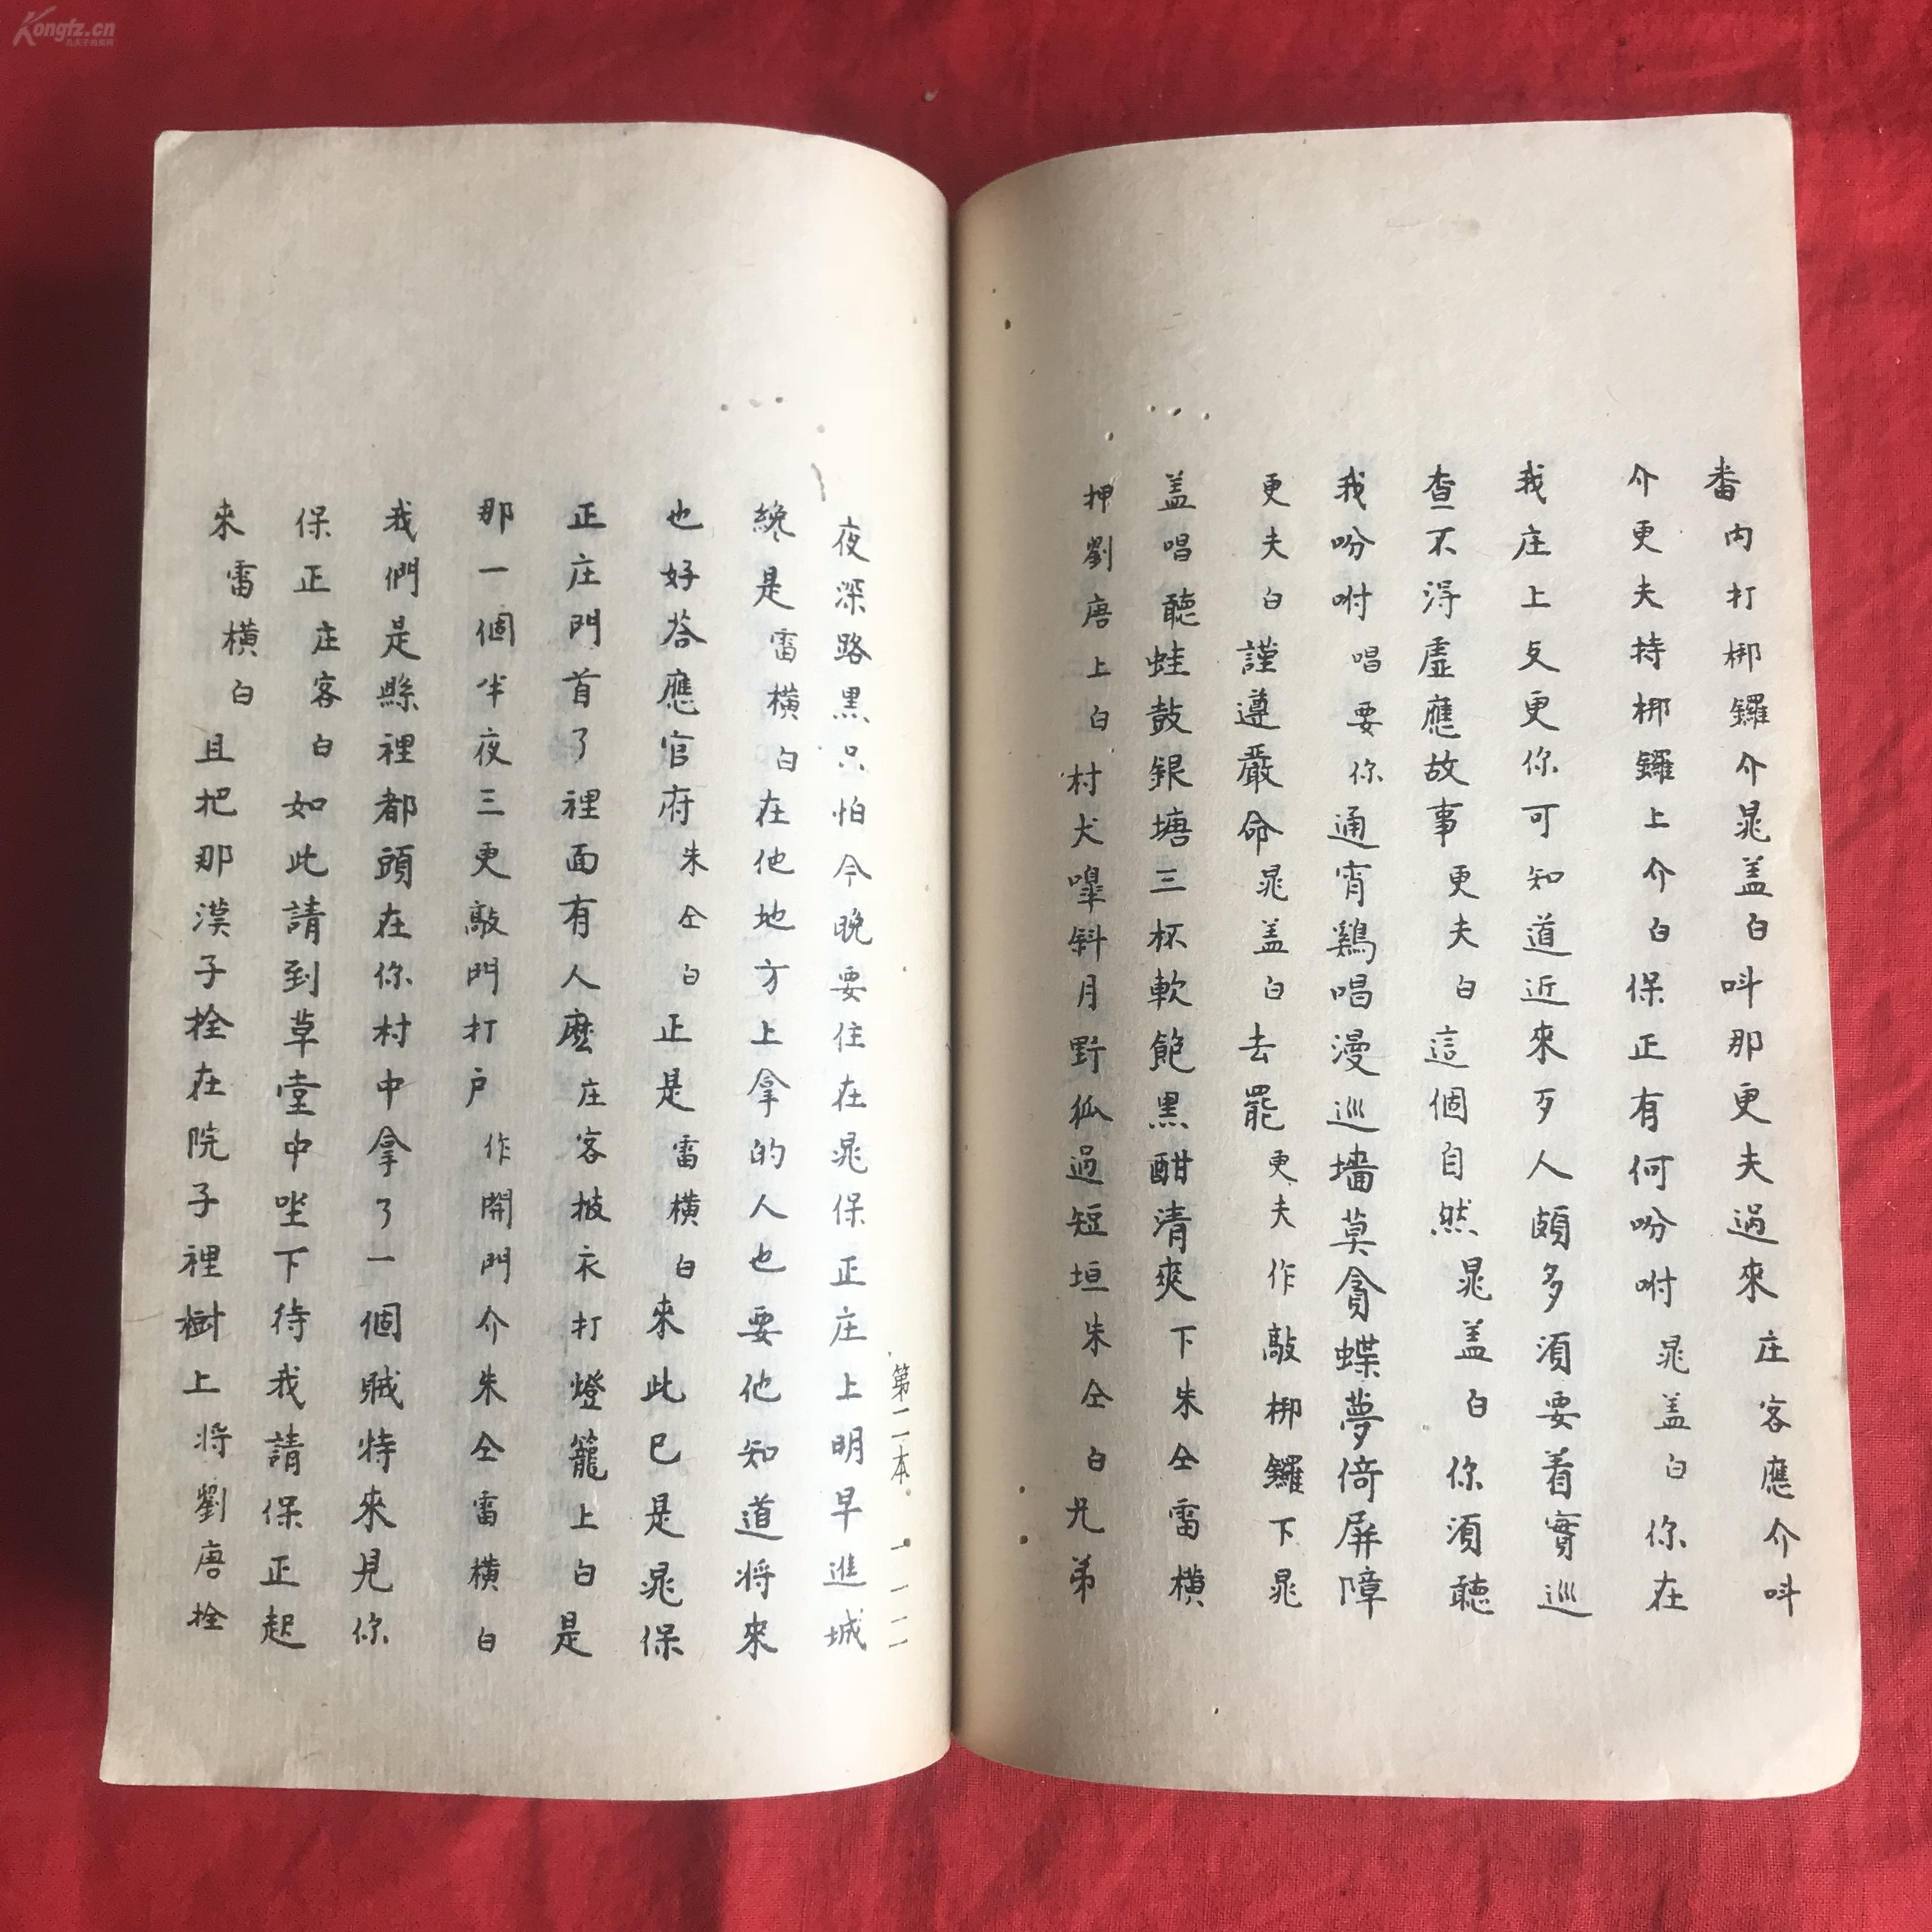 番内打梆鑼介晁盖白呌那更夫過來庄客應介呌
介更夫持梆鑼上介白保正有何吩咐晁盖白你在
我庄上支更你可知道近來歹人頗多湏要着實巡
查不淂虚應故事更夫白這個自然晁盖白你湏聼
我吩咐唱要你通宵鷄唱漫巡墻莫貪蝶夢倚屏障
更夫白謹遵嚴命晁盖白去罷更夫作敲梆鑼下晁
盖唱聼蛙鼓銀塘三杯軟飽黑酣清爽下朱仝雷横
押劉唐上白村犬嘷斜月野狐過短垣朱仝白兄弟
夜深路黑只怕今晚要住在晁保正庄上明早進城
纔是雷横白在他地方上拿的人也要他知道将來
也好荅應官府朱仝白正是雷横白來此已是晁保
正庄門首了裡面有人麽庄客披衣打燈籠上白是
那一個半夜三更敲門打户作開門介朱仝雷横白
我們是縣裡都頭在你村中拿了一個贼特來見你
保正庄客白如此請到草堂中坐下待我請保正起
來雷横白且把那漢子拴在院子裡樹上将劉唐拴
第二本
一一一一
Kongfz.cn